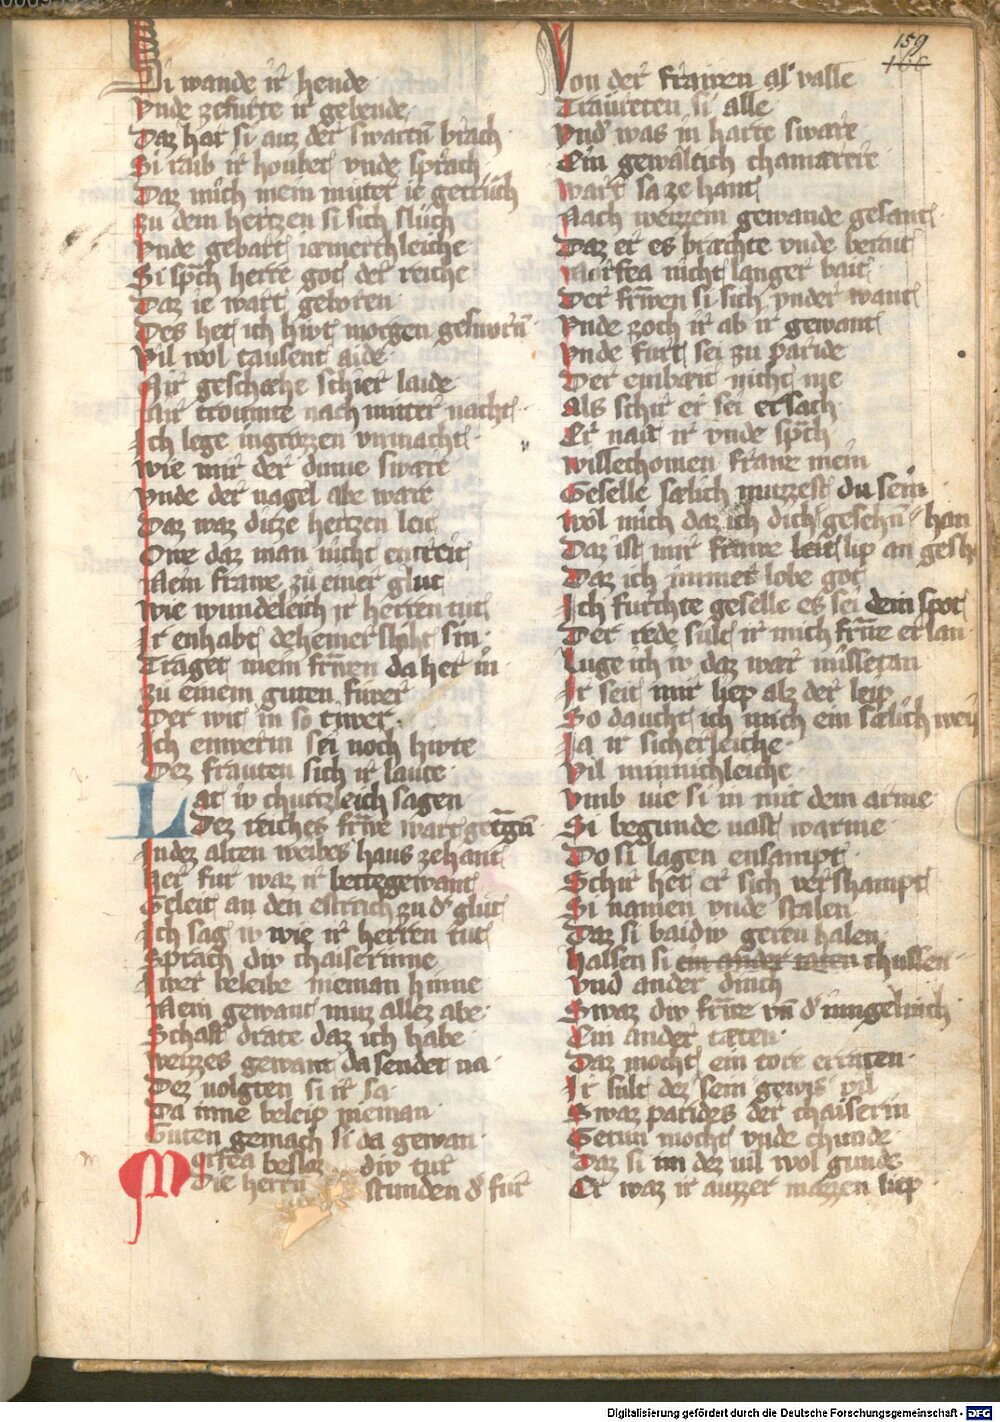 159
Si wande ir hende
Vnde zefurte ir gebende
Daz har si auz der swartn brach
Si raib ir houbet vnde sprach
Daz mich mein muter ie getruch
zu dem hertzen si sich sluch
Vnde gebart iæmerchleiche
Si sprch herre got der reiche
Daz ie wart geborn
Des het ich hiwt morgen gesworn
Vil wol tausent aide
Mir geschæhe schier laide
Mir troumte nach mitter nacht
Ich lege in grozzen vnmacht
Wie mir der dume sware
Vnde der nagel abe ware
Daz waz ditze hertzen leit
One daz man nicht enreit
Mein frawe zu einer glut
Wie wundeleich ir herren tut
Ir enhabt deheiner slaht sin
Traget mein frawen da her in
zu einem guten fiwer
Der wit in so tiwer
Ich enwerin sei noch hiwte
Dez frauten sich ir laute
Lat iw churtzleich sagen
Dez reiches frawe wart getragn
In dez alten weibes haus zehant
Her fur waz ir bettegewant
Geleit an den estrich zu der glut
Ich sag iw wie ir herren tut
Sprach diw chaiserinne
Iwer beleibe nieman hinne
Mein gewant muz allez abe
Schaff drate daz ich habe
Weizzes gewant da sendet na
Dez uolgten si ir sa
Da inne beleip nieman
Guten gemach si da gewan
Morfea besloz diw tur
Die herrn stunden der fur
Von der frawen al valle
Traureten si alle
Vnd was in harte sware
Ein gewaltich chamærere
Wart sa ze hant
Nach weizzem gewande gesant
Daz er es bræchte vnde berait
Morfea nicht langer bait
Der frawen si sich vnder want
Vnde zoch ir ab ir gewant
Vnde furt sei zu paride
Der enbait nicht me
Als schir er sei ersach
Er naic ir vnde sprch
Willechomen frawe mein
Geselle sælich muzzest du sein
Wol mich daz ich dich gesehn han
Daz ist mir frawe leit lip an gesh
Daz ich immer lobe got
Ich furchte geselle es sei dein spot
Der rede sult ir mich frawe erlan
Luge ich iw daz wær missetan
Ir seit mir liep alz der leip
So daucht ich mich ein sælich weip
Ja ir sicherleiche
Vil minnichleiche
Vmb vie si in mit dem arme
Si begunde uast warme
Do si lagen ensampt
Schir het er sich vershampt
Si namen vnde stalen
Daz si baidiw geren halen
Halsen si ein ander taten chussen
Vnd ander dinch
Swaz diw frawe vn der iungelinch
Ein ander tæten
Daz mocht ein tore erraten
Ir sult dez sein gewis vil
Swaz parides der chaiserin
Getun mocht vnde chunde
Daz si im dez uil wol gunde
Er waz ir auzzer mazzen liep
Digitalisierung gefördert durch die Deutsche Forschungsgemeinschaft - DFG